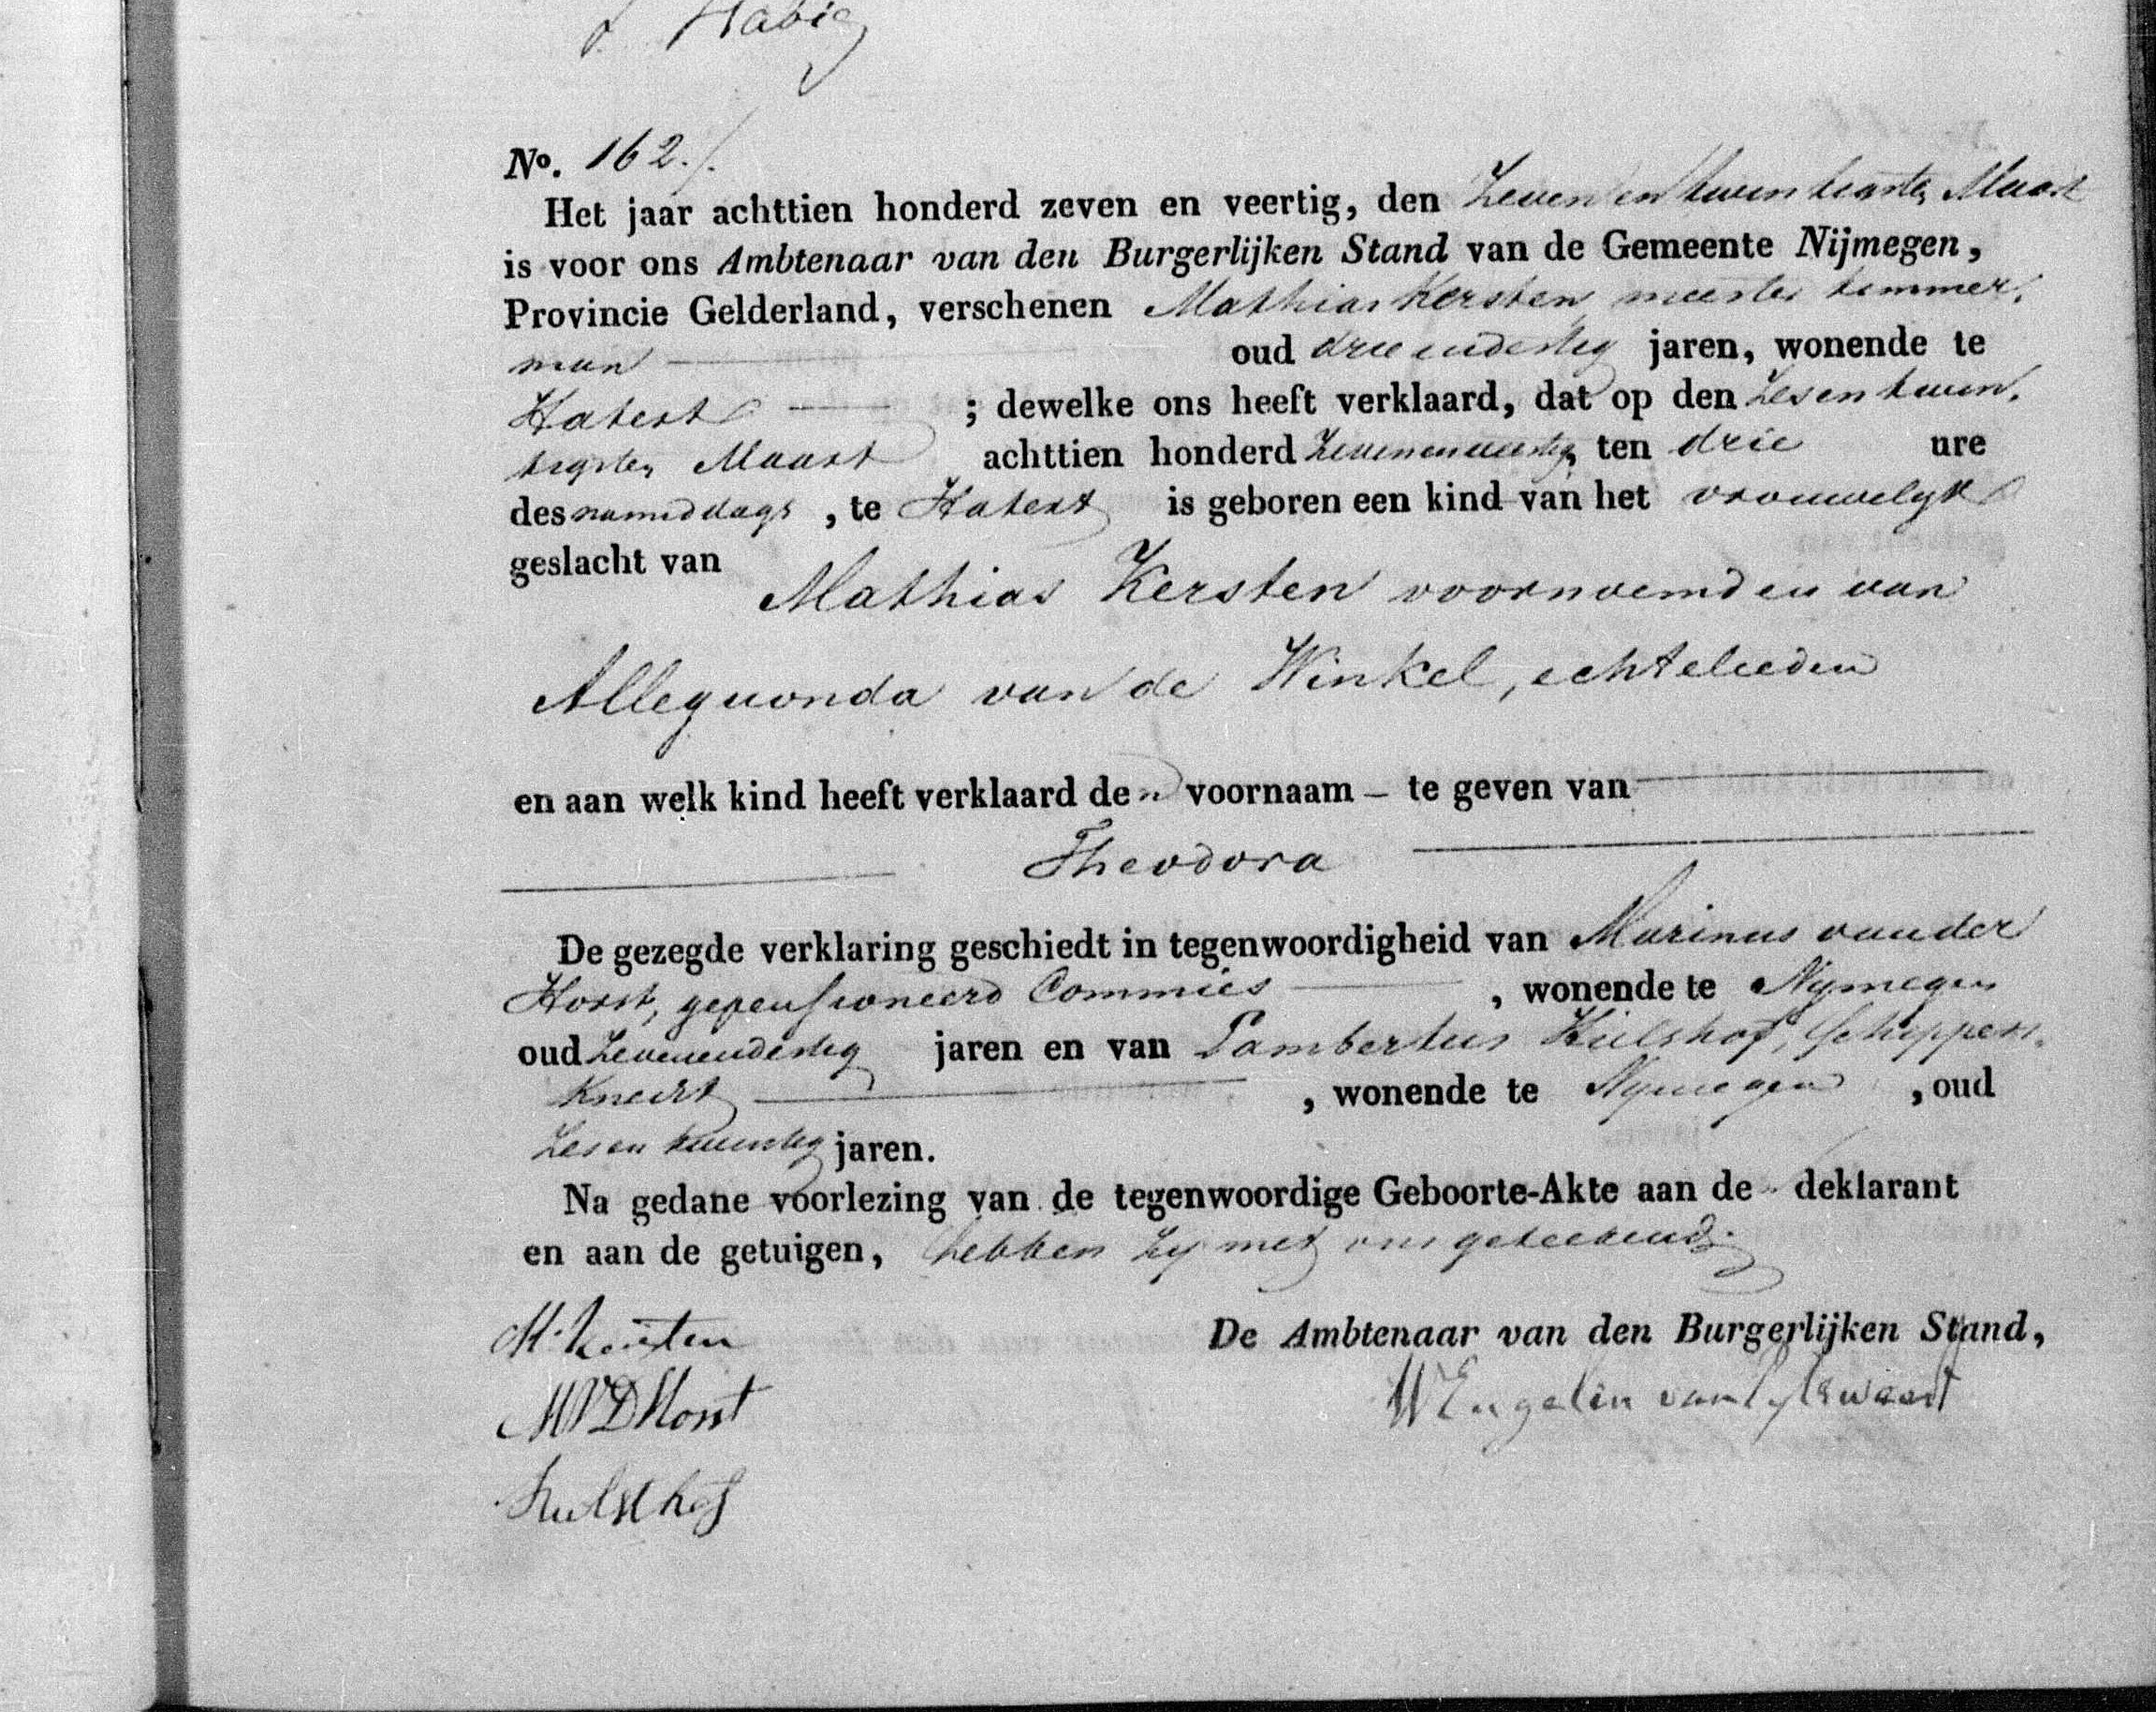 Habig
No. 162./.
Het jaar achttien honderd zeven en veertig, den Zeven en twintigsten Maart
is voor ons Ambtenaar van den Burgerlijken Stand van de Gemeente Nijmegen,
Provincie Gelderland, verschenen Mathias Kersten, meester timmer.
man oud drie endertig jaren, wonende te
Hatert ; dewelke ons heeft verklaard, dat op den Zesen twin.
tigsten Maart achttien honderd Zevenenveertig ten drie ure
des namiddags, te Hatert is geboren een kind van het vrouwelyk
geslacht van
Mathias Kersten voornoemd en van
Allegonda van de Winkel, echtelieden
en aan welk kind heeft verklaard den voornaam – te geven van
Theodora
De gezegde verklaring geschiedt in tegenwoordigheid van Marinus van der
Horst, gepensioneerd Commies, wonende te Nymegen
oud Zevenendertig jaren en van Lambertus Kulshof, Schippers.
Knecht, wonende te Nymegen, oud
Zesen twintig jaren.
Na gedane voorlezing van de tegenwoordige Geboorte-Akte aan den deklarant
en aan de getuigen, hebben zy met ons geteekend.
M. Kersten
De Ambtenaar van den Burgerlijken Stand,
MVDHorst
W Engelen van Pylsweert
Kulsthof